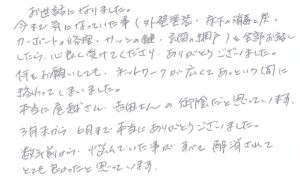 お世話になりました。
今まで気になっていた事(外壁塗装・床下の消毒と炭・
カーポートの修理・サッシの鍵・玄関の網戸)を全部お話し
したら、心良く受けてくださり、ありがとうございました。
何をお願いしても、ネットワークが広くてあっという間に
終わってしまいました。
本当に 吉田さんの御陰だと思っています。
3月末から、6月まで本当にありがとうございました。
数年前から 悩んでいた事が すべて 解消されて
とても良かったと思っています。